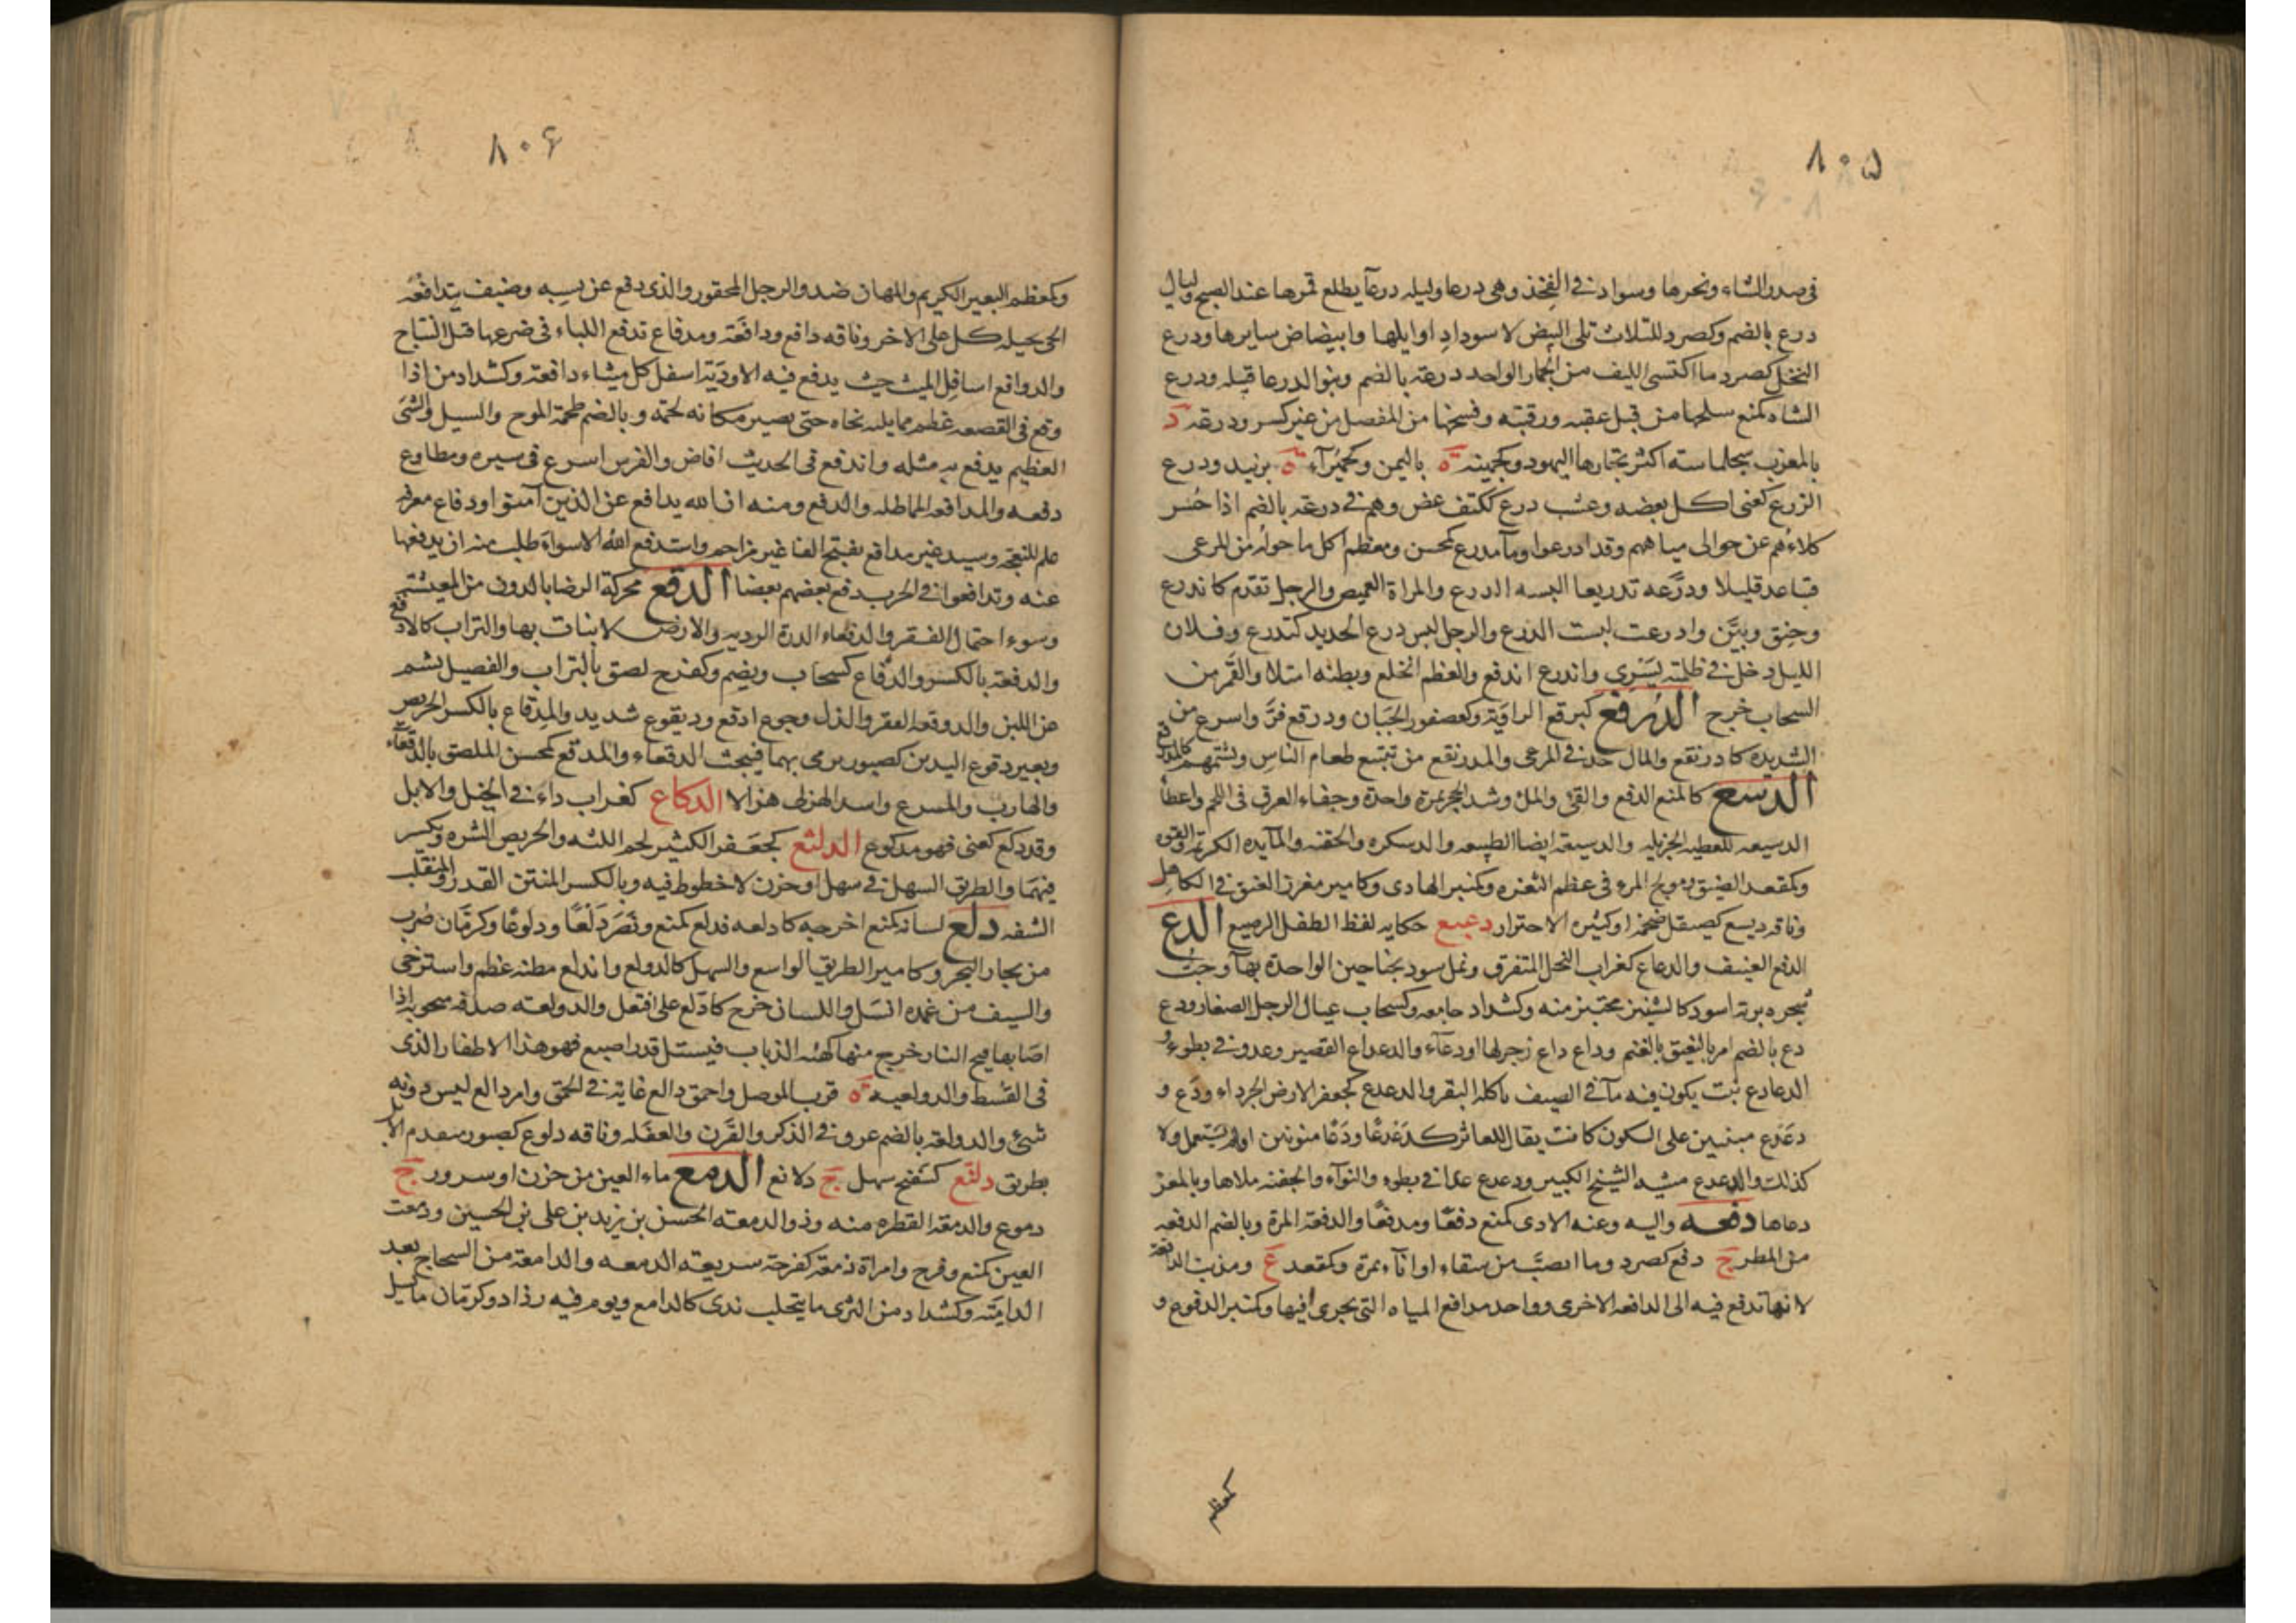 ٨٠۵
في صدر الشاء ونحرها وسواد في الفخذ وهي درعا وليله درعآ يطلع قمرها عند الصبح وليال
درع بالضم وكصرد للثلاث تلى البيض لاسوداد اوايلها وابيضاض سايرها ودرع
النخل كصرد ما اكتسى الليف من الجمار الواحد درعة بالضم وبنو الدرعا قبيله ودرع
الشاه كمنع سلخها من قبل عقبه ورقبته وفسخها من المفصل من غير كسر ودرعه د
بالمغرب سجلماسه اكثر تجارها اليهود وكجهينة ة باليمن وكحميرآء ة بزبيد ودرع
الزرع كعنى اكل بعضه وعشب درع ككتف غض وهم في درعه بالضم اذا حسر
كلاءهم عن حوالى مياههم وقد ادرعوا ومآ مدرع كمحسن ومعظم اكل ما حوله من المرعى
فتباعد قليلا ودرّعه تدريعا البسه الدرع والمراة القميص والرجل تقدم كاندرع
وخنق وبيّن وادرعت لبست الدرع والرجل لبس درع الحديد كتدرع وفلان
الليل دخل في ظلمته يسرى واندرع اندفع والعظم انخلع وبطنه امتلا والقمر من
السحاب خرج الدرقع كبرقع الراوية وكعصفور الجبان ودرقع فرّ واسرع من
الشديده كادرنقع والمال في المرعى والمدرنقع من تتبع طعام الناس وشتمهم
الدسع كالمنع الدفع والقئ والملء وسد الجحر بمرة واحدة وخفاء العرق في اللحم واعطا
الدسيعه للعطيه الجزيله والدسيعة ايضا الطبيعه والدسكره والجفنه والمآيده الكريمه والقوه
وكمقعد المضيق ومولج المرء في عظم الثغره وكمنبر الهادى وكامير مغرز العنق في الكاهل
وناقه ديسع كصيقل ضخمة او كثيره الاجترار دعبع حكايه لفظ الطفل الرضيع الدع
الدفع العنيف والدعاع كغراب النخل المتفرق ونمل سود بجناحين الواحدة بهآ وحب
شجره بريه اسود كالشينيز يختبز منه وكشداد جامعه وكسحاب عيال الرجل الصغار ودع
دع بالضم امر بالنعيق بالغنم وداع داع زجر لها او دعآء والدعداع القصير وعدو في بطوء
الدعادع نبت يكون فيه مآ في الصيف ياكله البقر والدعدع كجعفر الارض الجرداء ودَع و
دعدع مبنيين على السكون كانت يقال للعاثر كدعدعًا ودَعًا منونين او لم يستعمل ولا
كذلك والدعدع مشيه الشيخ الكبير ودعدع عدا في بطوء والتوآء والجفنه ملاها وبالمعز
دعاها دفعه واليه وعنه الاذى كمنع دفعًا ومدفعًا والدفعة المرة وبالضم الدفعه
من المطر ج دفع كصرد وما انصبّ من سقاء او انآء بمرة وكمقعد ع ومذنب الدافعة
لانها تدفع فيه الى الدافعه الاخرى وواحد مدافع المياه التى يجرى فيها وكمنبر الدفوع و
كمعظم
٨٠۶
وكمعظم البعير الكريم والمهان ضد والرجل المحقور والذى دفع عن نسبه وضيف يتدافعه
الحى يحيله كل على الاخر وناقه دافع ودافعة ومدفاع تدفع اللباء في ضرعها قبل النتاج
والدوافع اسافل الميث حيث يدفع فيه الاودية اسفل كل ميثاء دافعة وكشداد من اذا
وقع في القصعه عظم مما يليه نحاه حتى يصير مكانه لحمه وبالضم طحمة الموج والسيل والشئ
العظيم يدفع به مثله واندفع في الحديث افاض والفرس اسرع في سيره ومطاوع
دفعه والمدافعه المماطله والدفع ومنه ان الله يدافع عن الذين آمنوا ودفاع معرفه
علم للنعجة وسيد غير مدافع بفتح الفا غير مزاحم واستدفع الله الاسواء طلب منه ان يدفعها
عنه وتدافعوا في الحرب دفع بعضهم بعضا الدقع محركة الرضا بالدون من المعيشة
وسوء احتمال الفقر والدقعاء الذرة الرديه والارض لا نبات بها والتراب كالادقع
والدقعة بالكسر والدقاع كسحاب ويضم وكفرح لصق بالتراب والفصيل بشم
عن اللبن والدوقعه الفقر والذل وجوع ادقع وديقوع شديد والمدقاع بالكسر الحريص
وبعير دقوع اليدين كصبور يرمى بهما فيبحث الدقعاء والمدقع كمحسن الملصق بالدقعآء
والهارب والمسرع واسد الهزلى هزالا الدكاع كغراب داء في الخيل والابل
وقد دكع كعنى فهو مدكوع الدلثع كجعفر الكثير لحم اللثه والحريص الشره ويكسر
فيهما والطريق السهل في سهل او حزن لا خطوط فيه وبالكسر المنتن القذر والمنقلب
الشفه دلع لسانه كمنع اخرجه كادلعه فدلع كمنع ونصر دَلْعًا ودلوعًا وكرمّان ضرب
من محار البحر وكامير الطريق الواسع والسهل كالدولع واندلع بطنه عظم واسترخى
والسيف من غمده انسل واللسان خرج كادّلع على افتعل والدولعه صدفه متحويه اذا
اصابها فيح النار خرج منها كهئه الذباب فيستل قدر اصبع فهو هذا الاظفار الذى
في القسط والدولعيه ة قرب الموصل واحمق دالع غاية في الحمق وامر دالع ليس دونه
شئ والدولعة بالضم عرق في الذكر والقرن والعفله وناقه دلوع كصبور تتقدم الابل
بطريق دلنع كسفنج سهل ج دلانع الدمع ماء العين من حزن او سرور ج
دموع والدمعة القطره منه وذو الدمعه الحسن بن زيد بن على بن الحسين ودمعت
العين كمنع وفرح وامراة دمعة كفرحة سريعة الدمعه والدامعة من السحاج بعد
الدامية وكشداد من الثرى ما يتحلب ندى كالدامع ويوم فيه رذاذ وكرمّان ما يسيل